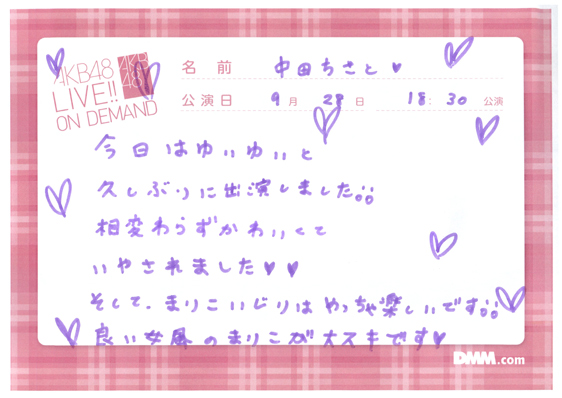 AKB48
LIVE!!
ON DEMAND
AKB
48
名 前 中田ちさと♥
公演日 9月 28日 18:30 公演
今日はゆぃゆぃと
久しぶりに出演しました
相変わらずかわいくて
いやされました♥♥
そして、まりこいじりはやっちゃ楽しいです
良い女風のまりこが大スキです♥
DMM.com